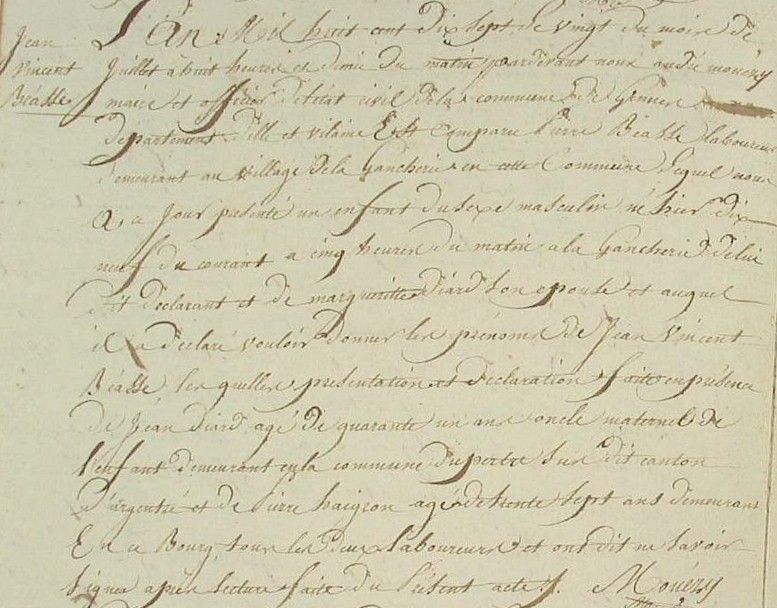 Jean
Vincent
Béasse
L'An Mil huit cent dix sept le vingt du mois de
Juillet a huit heures et demie du matin pardevant nous andré mouézy
maire et officier de l'état civil de la commune de Gennes
departement d'ille et vilaine Est comparu Pierre Béasse laboureur
demeurant au village de la Gancherie en cette Commune Lequel nous
a ce jour presenté un enfant du sexe masculin né hier dix
neuf du courant a cinq heures du matin a la Gancherie de lui
dit declarant et de margueritte diard son epouse et auquel
il a déclaré vouloir donner les prénoms de Jean Vincent
Béasse les quelles presentation et declaration faite en présence
de Jean diard agé de quarante un ans oncle maternel de
l'enfant demeurant en la commune du pertre sus dit canton
d'argentré et de Pierre haigron agé de trente sept ans demeurant
En ce Bourg tous les deux laboureurs et ont dit ne savoir
signer après lecture faite du Présent acte /. Mouézy